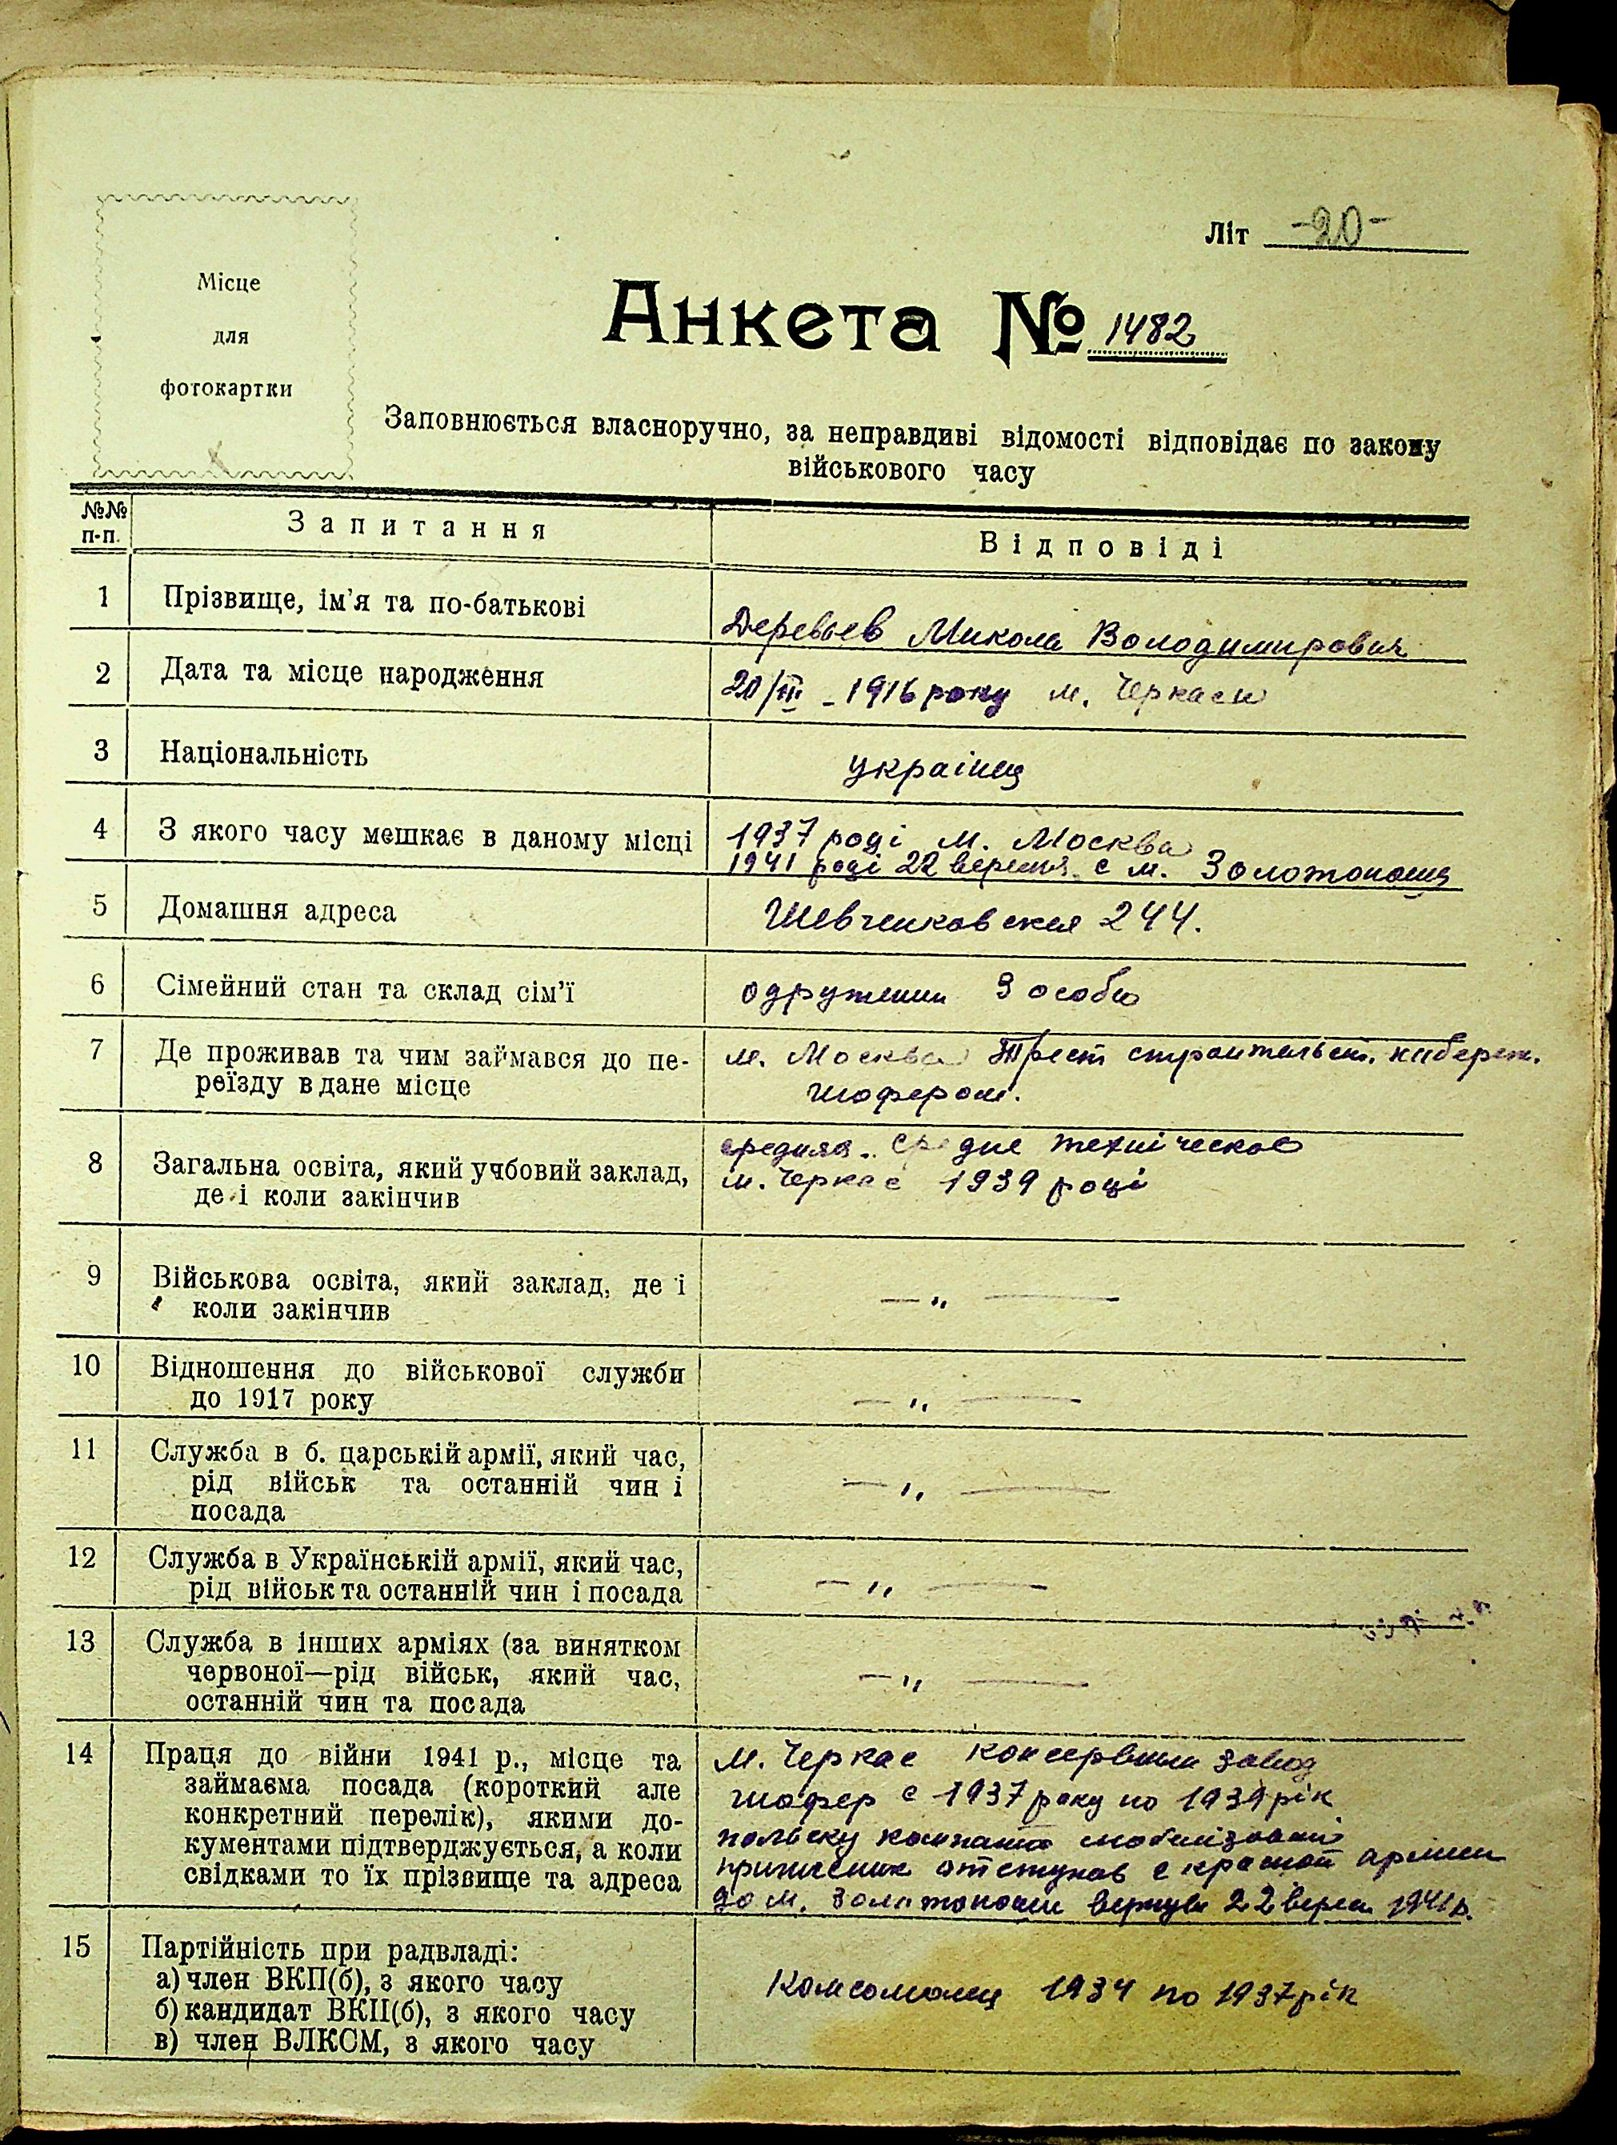 Місце
для
фотокартки
Літ -20-
Анкета № 1482
Заповнюється власноручно, за неправдиві відомості відповідає по закону
військового часу
№№ п-п. Запитання Відповіді
1 Прізвище, ім'я та по-батькові
Деревьев Микола Володимирович
2 Дата та місце народження
20/III - 1916 року м. Черкаси
3 Національність
українец
4 З якого часу мешкає в даному місці
1937 році м. Москва
1941 році 22 вересня с м. Золотоноша
5 Домашня адреса
Шевченковская 244.
6 Сімейний стан та склад сім'ї
одружении 3 особи
7 Де проживав та чим займався до пе-
реїзду в дане місце
м. Москва Трест строительст. набереж.
шофером.
8 Загальна освіта, який учбовий заклад,
де і коли закінчив
средняя. средне техническое
м. Черкас 1939 році
9 Військова освіта, який заклад, де і
коли закінчив
— „ —
10 Відношення до військової служби
до 1917 року
— „ —
11 Служба в б. царській армії, який час,
рід військ та останній чин і
посада
— „ —
12 Служба в Українській армії, який час,
рід військ та останній чин і посада
— „ —
13 Служба в інших арміях (за винятком
червоної—рід військ, який час,
останній чин та посада
— „ —
14 Праця до війни 1941 р., місце та
займаєма посада (короткий але
конкретний перелік), якими до-
кументами підтверджується, а коли
свідками то їх прізвище та адреса
м. Черкас консервний завод
шофер с 1937 року по 1939 рік
польску
отступав с красной армии
до м. Золотоноши вернувс 22 верес 1941 р.
15 Партійність при радвладі:
а) член ВКП(б), з якого часу
б) кандидат ВКП(б), з якого часу
в) член ВЛКСМ, з якого часу
Комсомолец 1934 по 1937 рік